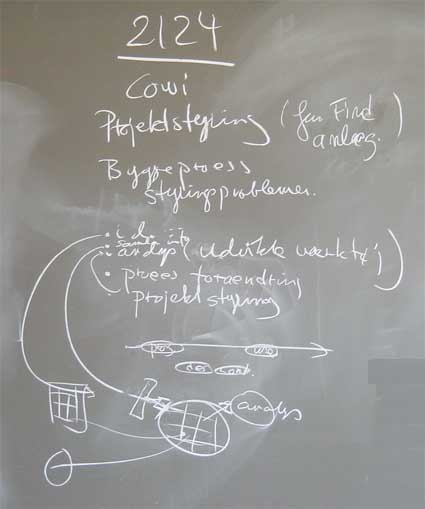 2124
Cowi
Projektstyring (før Find
anlæg.)
Byggeproces
styringsproblemer.
analys (udvikle værktøj)
proces forandring
projektstyring
analys